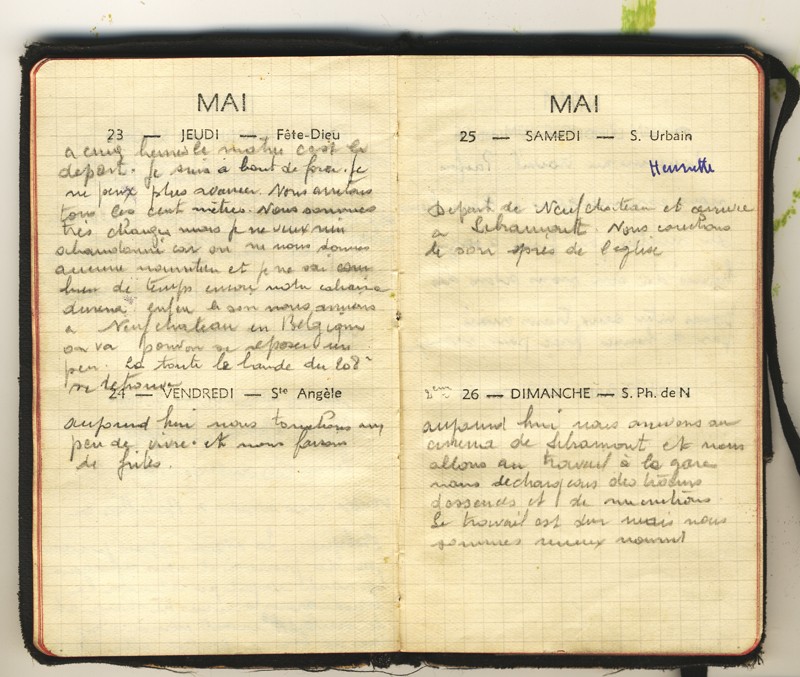 MAI
23 — JEUDI — Fête-Dieu
a cinq heures le matin c'est le
depart. Je suis à bout de force. Je
ne peux plus avancer. Nous arretons
tous les cent mètres. Nous sommes
très chargés mais je ne veux rien
abandonné car on ne nous donnes
aucune nourriture et je ne sai com
bien de temps encore notre calvaire
durera. enfin le soir nous arrivons
a Neufchateau en Belgique
on va pouvoir se reposer un
peu. La toute la bande du 208e
se retrouve
24 — VENDREDI — Ste Angèle
aujourd hui nous touchons un
peu de vivre. et nous faisons
de frites.
MAI
25 — SAMEDI — S. Urbain
Henriette
Depart de Neufchateau et arrivée
a Libramont. Nous couchons
le soir apres de l'eglise
2em 26 — DIMANCHE — S. Ph. de N
aujourd hui nous arrivons au
cinema de Libramont et nous
allons au travail à la gare
nous dechargeons des
d'essences et de munitions.
Le travail est dur mais nous
sommes mieux nourrit